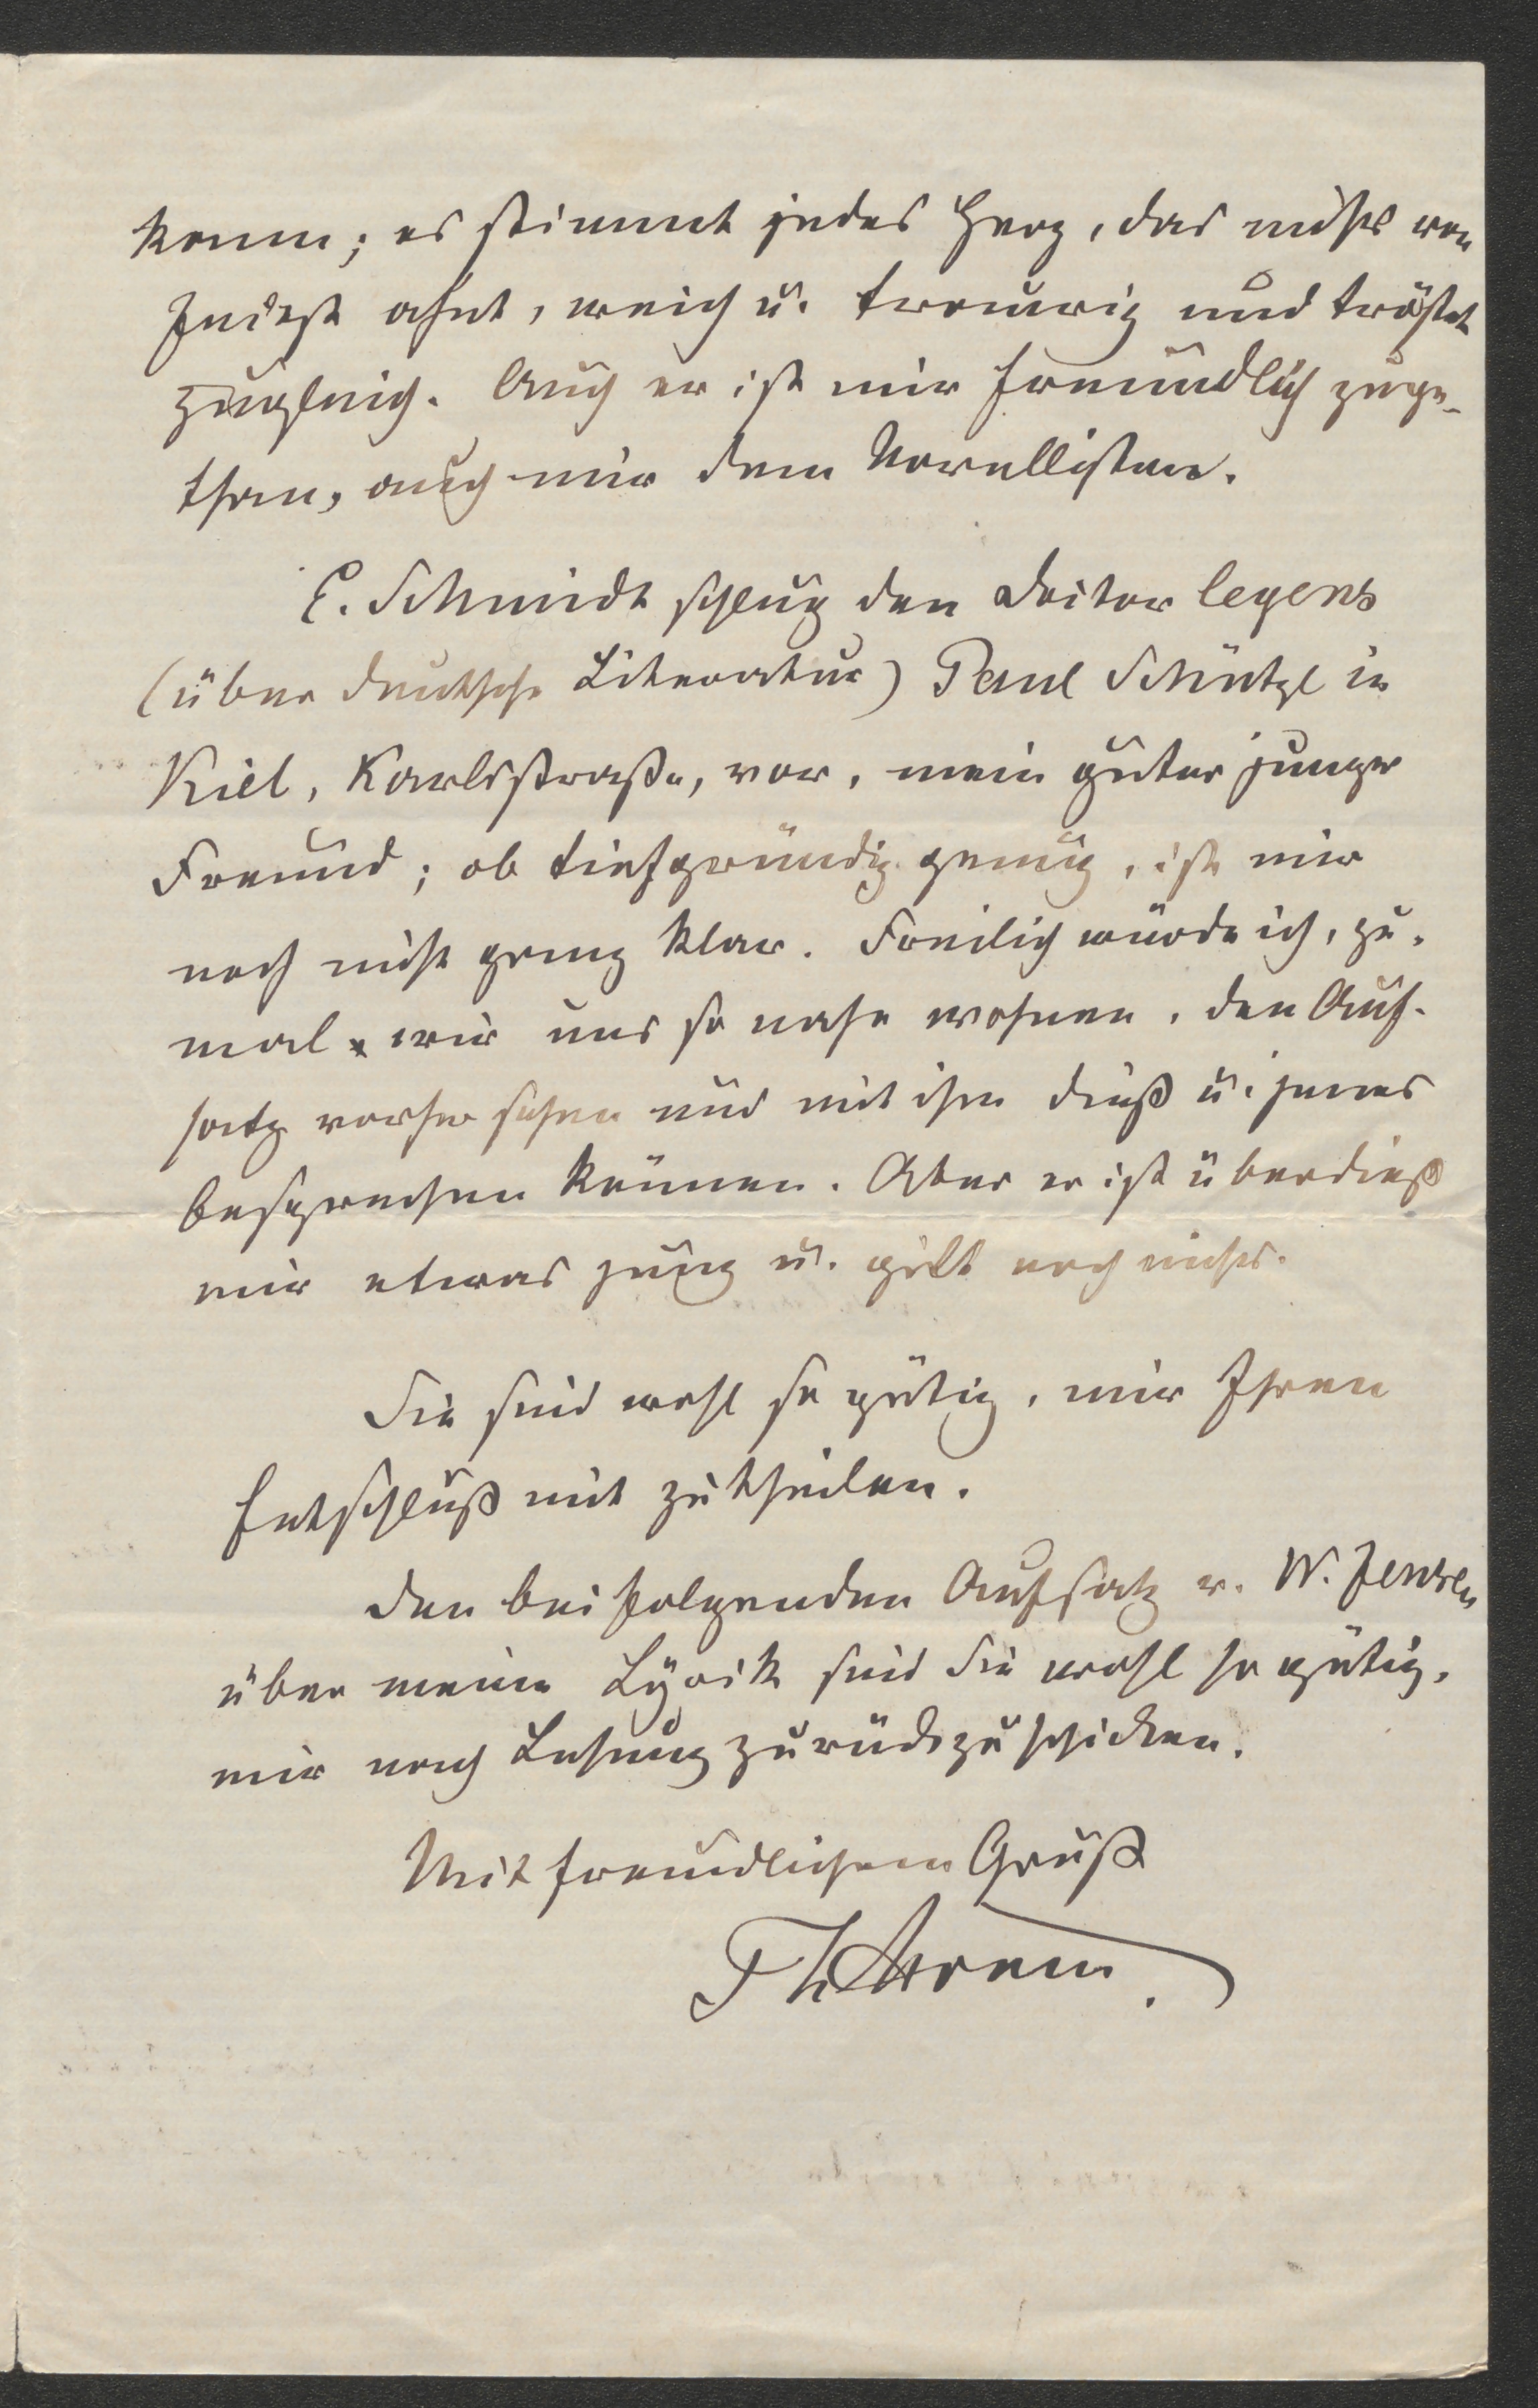 kenne; es stimmt jedes Herz, das nichts von
Indest ahnt, weich u. traurig und tröstet
zugleich. Auch er ist mir freundlich zuge-
than, auch mir dem Novellisten.
E. Schmidt schlug den Doctor legens
(über deutsche Literatur) Paul Schütze in
Kiel, Karlsstraße, vor, mein guter junger
Freund; ob tiefgründig genug, ist mir
noch nicht ganz klar. Freilich würde ich, zu-
mal wir uns so nahe wohnen, den Auf-
satz vorher sehen und mit ihm dieß u. jenes
besprechen können. Aber er ist überdieß
mir etwas jung u. gilt noch nichts.
Sie sind wohl so gütig, mir Ihren
Entschluß mit zutheilen.
Den beifolgenden Aufsatz v. W. Jensen
über meine Lyrik sind Sie wohl so gütig,
mir nach Lesung zurückzuschicken.
Mit freundlichem Gruß
ThStorm.